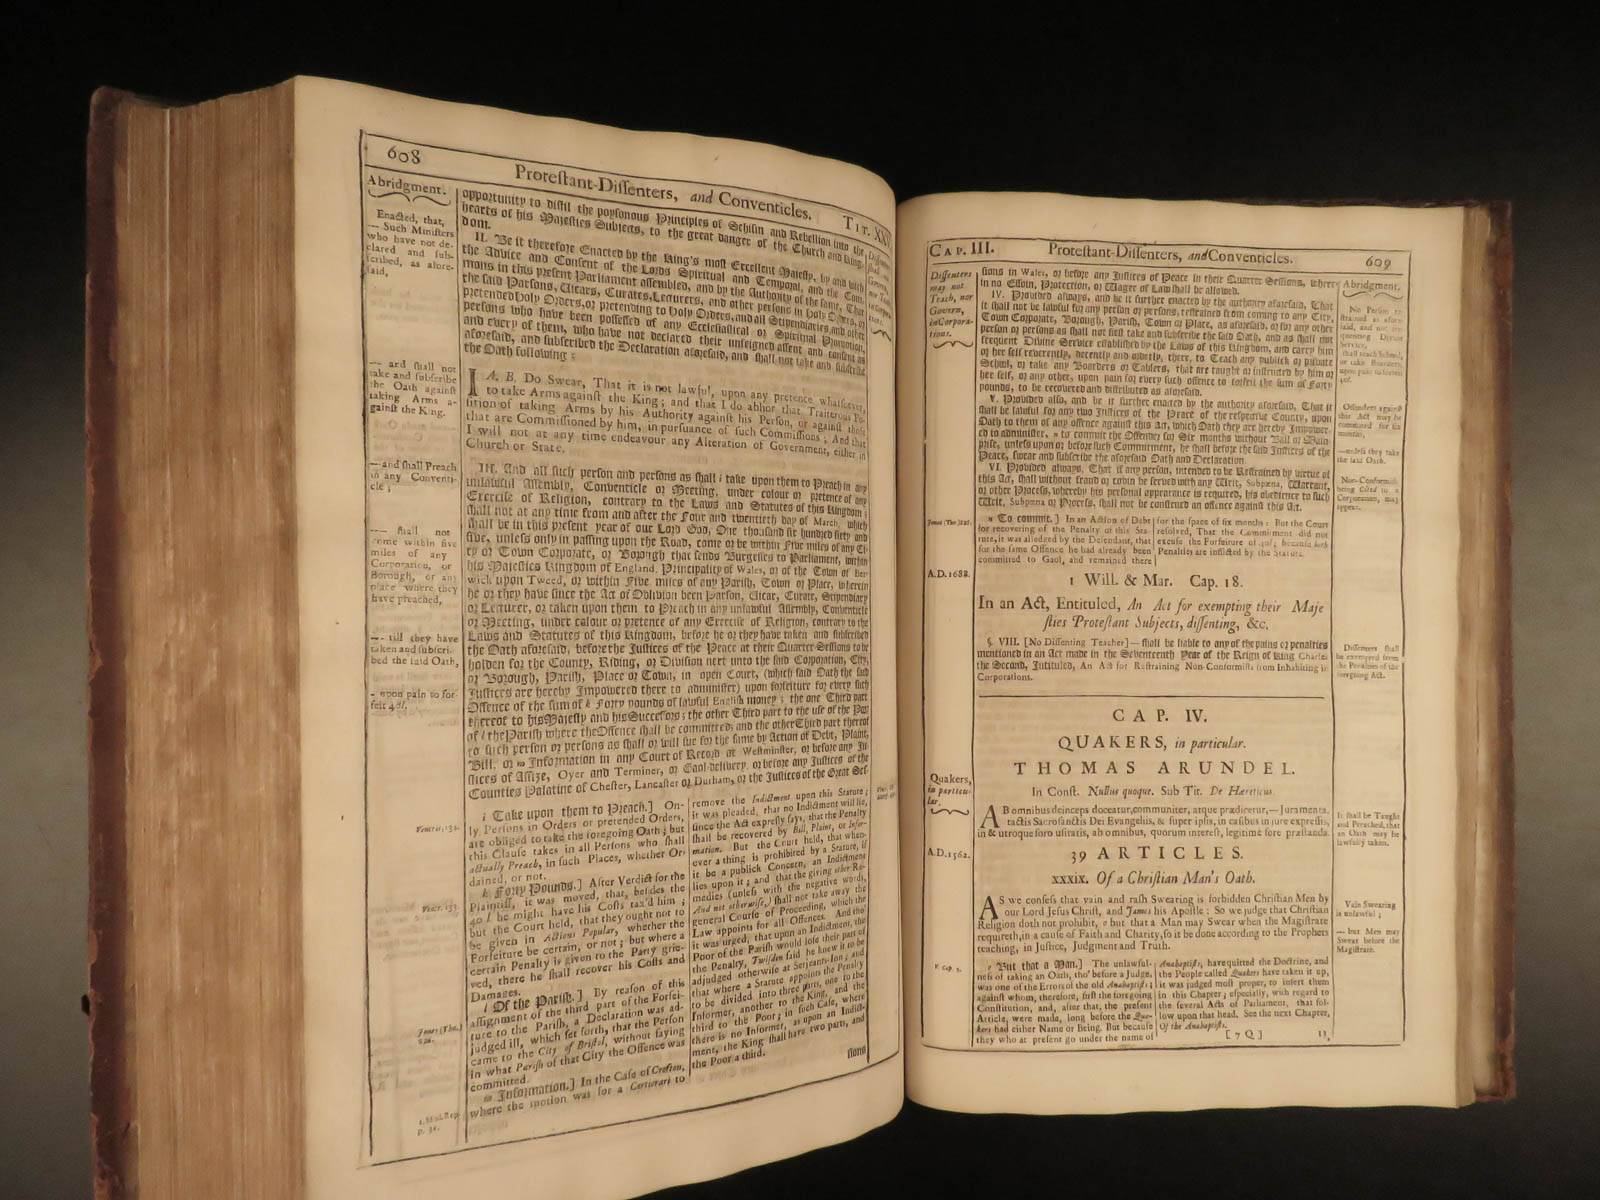 608
Protestant-Dissenters, and Conventicles. TIT. XXV
Abridgment.
Enacted, that,
— Such Ministers
who have not de-
clared and sub-
scribed, as afore-
said,
— and shall not
take and subscribe
the Oath against
taking Arms a-
gainst the King.
— and shall Preach
in any Conventi-
cle;
— shall not
come within five
miles of any
Corporation, or
Borough, or any
place where they
have preached,
— till they have
taken and subscri-
bed the said Oath,
- upon pain to for-
feit 40l.
opportunity to distil the poysonous Principles of Schism and Rebellion into the
hearts of his Majesties Subjects, to the great danger of the Church and King-
dom.
II. Be it therefore Enacted by the King's most Excellent Majesty, by and with
the Advice and Consent of the Lords Spiritual and Temporal, and the Com-
mons in this present Parliament assembled, and by the Authority of the same, That
the said Parsons, Vicars, Curates, Lecturers, and other persons in Holy Orders, or
pretended Holy Orders, or pretending to Holy Orders, and all Stipendiaries, and other
persons who have been possessed of any Ecclesiastical or Spiritual Promotion,
and every of them, who have not declared their unfeigned assent and consent as
aforesaid, and subscribed the Declaration aforesaid, and shall not take and subscribe
the Oath following:
I A. B. Do Swear, That it is not lawful, upon any pretence whatsoever,
to take Arms against the King; and that I do abhor that Traiterous Po-
sition of taking Arms by his Authority against his Person, or against those
that are Commissioned by him, in pursuance of such Commissions; And that
I will not at any time endeavour any Alteration of Government, either in
Church or State.
III. And all such person and persons as shall i take upon them to Preach in any
unlawful Assembly, Conventicle or Meeting, under colour or pretence of any
Exercise of Religion, contrary to the Laws and Statutes of this Kingdom;
shall not at any time from and after the Four and twentieth day of March, which
shall be in this present year of our Lord God, One thousand six hundred sixty and
five, unless only in passing upon the Road, come or be within Five miles of any Ci-
ty or Town Corporate, or Borough that sends Burgesses to Parliament, within
his Majesties Kingdom of England, Principality of Wales, or of the Town of Ber-
wick upon Tweed, or within Five miles of any Parish, Town or Place, wherein
he or they have since the Act of Oblivion been Parson, Vicar, Curate, Stipendiary
or Lecturer, or taken upon them to Preach in any unlawful Assembly, Conventicle
or Meeting, under colour or pretence of any Exercise of Religion, contrary to the
Laws and Statutes of this Kingdom, before he or they have taken and subscribed
the Oath aforesaid, before the Justices of the Peace at their Quarter-Sessions to be
holden for the County, Riding, or Division next unto the said Corporation, City,
or Borough, Parish, Place or Town, in open Court, (which said Oath the said
Justices are hereby Impowered there to administer) upon forfeiture for every such
Offence of the sum of k Forty pounds of lawful English money; the one Third part
thereof to his Majesty and his Successors; the other Third part to the use of the Poor
of l the Parish where the Offence shall be committed; and the other Third part thereof
to such person or persons as shall or will sue for the same by Action of Debt, Plaint,
Bill, or m Information in any Court of Record at Westminster, or before any Ju-
stices of Assize, Oyer and Terminer, or Gaol-delivery, or before any Justices of the
Counties Palatine of Chester, Lancaster or Durham, or the Justices of the Great Ses-
Ventris, 132.
Ventr. 133.
Jones (Tho.)
i Take upon them to Preach.] On-
ly Persons in Orders or pretended Orders,
are obliged to take the foregoing Oath; but
this Clause takes in all Persons who shall
actually Preach, in such Places, whether Or-
dained, or not.
k Forty Pounds.] After Verdict for the
Plaintiff, it was moved, that, besides the
40 l he might have his Costs tax'd him;
but the Court held, that they ought not to
be given in Actions Popular, whether the
Forfeiture be certain, or not; but where a
certain Penalty is given to the Party grie-
ved, there he shall recover his Costs and
Damages.
l Of the Parish.] By reason of this
assignment of the third part of the Forfei-
ture to the Parish, a Declaration was ad-
judged ill, which set forth, that the Person
came to the City of Bristol, without saying
in what Parish of that City the Offence was
committed.
m Information.] In the Case of Crofton,
where the motion was for a Certiorari to
remove the Indictment upon this Statute;
it was pleaded, that no Indictment will lie,
since the Act expresly says, that the Penalty
shall be recovered by Bill, Plaint, or Infor-
mation. But the Court held, that when-
ever a thing is prohibited by a Statute, if
it be a publick Concern, an Indictment
lies upon it; and that the giving other Re-
medies (unless with the negative words,
And not otherwise,) shall not take away the
general Course of Proceeding, which the
Law appoints for all Offences. And tho'
it was urged, that upon an Indictment, the
Poor of the Parish would lose their part of
the Penalty, Twisden said he knew it to be
adjudged otherwise at Serjeants-Inn; and
that where a Statute appoints the Penalty
to be divided into three parts, one to the
Informer, another to the King, and the
third to the Poor; in such Case, where
there is no Informer, as upon an Indict-
ment, the King shall have two parts, and
the Poor a third.
sions
CAP. III. Protestant-Dissenters, and Conventicles. 609
Dissenters
may not
Teach, nor
Govern,
in Corpora-
tions.
sions in Wales, or before any Justices of Peace in their Quarter Sessions, wherein
no Essoin, Protection, or Wager of Law shall be allowed.
IV. Provided always, and be it further enacted by the authority aforesaid, That
it shall not be lawful for any person or persons, restrained from coming to any City,
Town Corporate, Borough, Parish, Town or Place, as aforesaid, or for any other
person or persons as shall not first take and subscribe the said Oath, and as shall not
frequent Divine Service established by the Laws of this Kingdom, and carry him
or her self reverently, decently and orderly, there, to Teach any publick or private
School, or take any Boarders or Tablers, that are taught or instructed by him or
her self, or any other, upon pain for every such offence to forfeit the sum of Forty
pounds, to be recovered and distributed as aforesaid.
V. Provided also, and be it further enacted by the authority aforesaid, That it
shall be lawful for any two Justices of the Peace of the respective County, upon
Oath to them of any offence against this Act, which Oath they are hereby Impower-
ed to administer, n to commit the Offender for Six months without Bail or Main-
prise, unless upon or before such Commitment, he shall before the said Justices of the
Peace, swear and subscribe the aforesaid Oath and Declaration.
VI. Provided always, That if any person, intended to be Restrained by virtue of
this Act, shall without fraud or covin be served with any Writ, Subpœna, Warrant,
or other Process, whereby his personal appearance is required, his obedience to such
Writ, Subpœna or Process, shall not be construed an offence against this Act.
Abridgment.
Offenders against
this Act may be
committed for six
months,
—unless they take
the said Oath.
Non-Conformists
being Cited to a
Corporation, may
appear.
n To commit.] In an Action of Debt
for recovering of the Penalty of this Sta-
tute, it was alledged by the Defendant, that
for the same Offence he had already been
committed to Gaol, and remained there
for the space of six months: But the Court
resolved, That the Commitment did not
excuse the Forfeiture of 40l; because both
Penalties are inflicted by the Statute.
A.D. 1688.
1 Will. & Mar. Cap. 18.
In an Act, Entituled, An Act for exempting their Maje
sties Protestant Subjects, dissenting, &c.
§. VIII. [No Dissenting Teacher] — shall be liable to any of the pains or penalties
mentioned in an Act made in the Seventeenth Year of the Reign of King Charles
the Second, Intituled, An Act for Restraining Non-Conformists from Inhabiting in
Corporations.
Dissenters shall
be exempted from
the Penalties of the
foregoing Act.
CAP. IV.
QUAKERS, in particular.
THOMAS ARUNDEL.
In Const. Nullus quoque. Sub Tit. De Hæreticis
Quakers,
in particu-
lar.
AB omnibus deinceps doceatur, communiter, atque prædicetur, — Juramenta,
tactis Sacrosanctis Dei Evangelis, & super ipsis, in casibus in jure expressis,
in & utroque foro usitatis, ab omnibus, quorum interest, legitimè fore præstanda.
It shall be Taught
and Preached, that
an Oath may be
lawfully taken.
A.D. 1562.
39 ARTICLES.
XXXIX. Of a Christian Man's Oath.
AS we confess that vain and rash Swearing is forbidden Christian Men by
our Lord Jesus Christ, and James his Apostle: So we judge that Christian
Religion doth not prohibit, o but that a Man may Swear when the Magistrate
requireth, in a cause of Faith and Charity, so it be done according to the Prophets
teaching, in Justice, Judgment and Truth.
Vain Swearing
is unlawful;
— but Men may
Swear before the
Magistrate.
V. Cap. 5.
o But that a Man.] The unlawful-
ness of taking an Oath, tho' before a Judge,
was one of the Errors of the old Anabaptists;
against whom, therefore, first the foregoing
Constitution, and, after that, the present
Article, were made, long before the Qua-
kers had either Name or Being. But because
they who at present go under the name of
Anabaptists, have quitted the Doctrine, and
the People called Quakers have taken it up,
it was judged most proper, to insert them
in this Chapter; especially, with regard to
the several Acts of Parliament, that fol-
low upon that head. See the next Chapter,
Of the Anabaptists.
[ 7 Q ] 13,